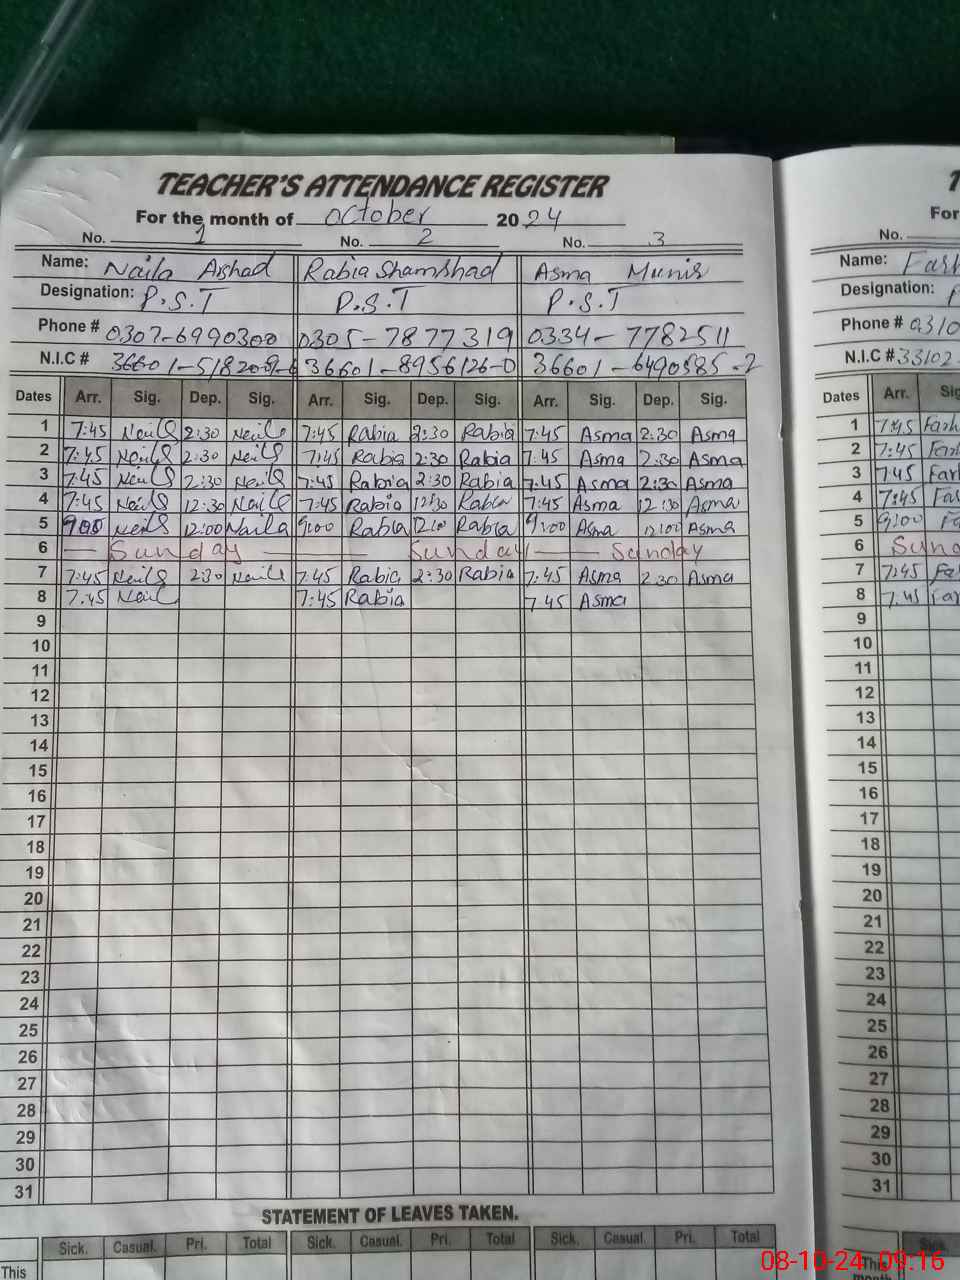 TEACHER'S ATTENDANCE REGISTER
For the month of October 2024
No. 1 No. 2 No. 3
Name: Naila Arshad Rabia Shamshad Asma Munir
Designation: P.S.T P.S.T P.S.T
Phone # 0307-6990300 0305-7877319 0334-7782511
N.I.C # 36601-8956126-0
Dates Arr. Sig. Dep. Sig. Arr. Sig. Dep. Sig. Arr. Sig. Dep. Sig.
1 7:45 Naila 2:30 Naila 7:45 Rabia 2:30 Rabia 7:45 Asma 2:30 Asma
2 7:45 Naila 2:30 Naila 7:45 Rabia 2:30 Rabia 7:45 Asma 2:30 Asma
3 7:45 Naila 2:30 Naila 7:45 Rabia 2:30 Rabia 7:45 Asma 2:30 Asma
4 7:45 Naila 12:30 Naila 7:45 Rabia 12:30 Rabia 7:45 Asma 12:30 Asma
5 9:00 Naila 12:00 Naila 9:00 Rabia 12:00 Rabia 9:00 Asma 12:00 Asma
6 Sunday Sunday Sunday
7 7:45 Naila 2:30 Naila 7:45 Rabia 2:30 Rabia 7:45 Asma 2:30 Asma
8 7:45 Naila 7:45 Rabia 7:45 Asma
9
10
11
12
13
14
15
16
17
18
19
20
21
22
23
24
25
26
27
28
29
30
31
STATEMENT OF LEAVES TAKEN.
Sick. Casual. Pri. Total Sick. Casual. Pri. Total Sick. Casual. Pri. Total
This
For
No.
Name:
Designation:
Phone # 0310
N.I.C # 33102
Dates Arr. Sig
1 7:45
2 7:45
3 7:45
4 7:45
5 9:00
6
7 7:45
8 7:45
9
10
11
12
13
14
15
16
17
18
19
20
21
22
23
24
25
26
27
28
29
30
31
Sick.
This
month
08-10-24 09:16